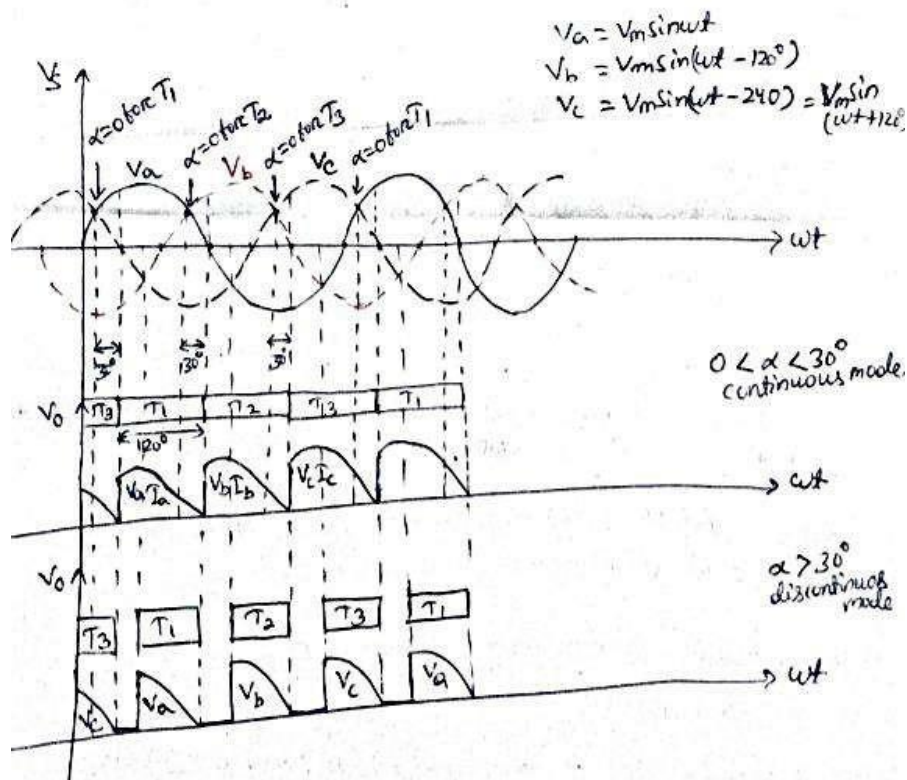 Va = Vm sin ωt
Vb = Vm sin(ωt - 120°)
Vc = Vm sin(ωt - 240) = Vm sin
(ωt + 120°)
Vs
α=0 for T1
α=0 for T2
α=0 for T3
α=0 for T1
Va
Vb
Vc
ωt
30°
30°
0 < α < 30°
continuous mode.
Vo
T3
T1
T2
T3
T1
120°
Va Ia
Vb Ib
Vc Ic
ωt
Vo
α > 30°
discontinuos
mode
T3
T1
T2
T3
T1
Vc
Va
Vb
Vc
Va
ωt